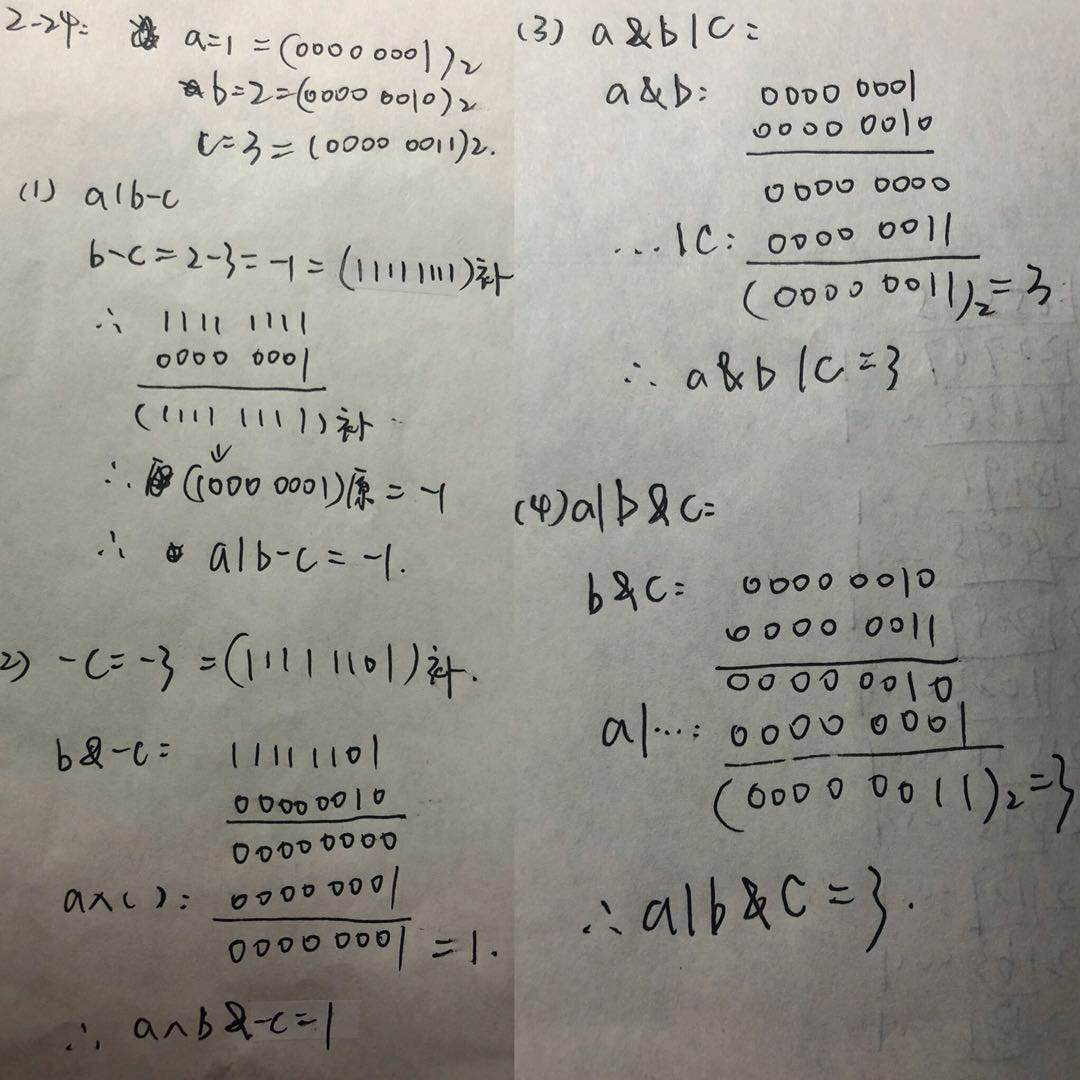 2-24: a=1=(0000 0001)₂
b=2=(0000 0010)₂
c=3=(0000 0011)2.
(1) a|b-c
b-c=2-3=-1=(11111111)补
∴ 1111 1111
0000 0001
(1111 1111)补
↓
∴ (1000 0001)原=-1
∴ a|b-c=-1.
2) -c=-3=(11111101)补.
b&-c= 11111101
00000010
00000000
a∧( ): 00000001
00000001=1.
∴ a∧b&-c=1
(3) a&b|c:
a&b: 0000 0001
0000 0010
0000 0000
...|c: 0000 0011
(0000 0011)₂=3
∴ a&b|c=3
(4) a|b&c=
b&c= 0000 0010
0000 0011
0000 0010
a|...: 0000 0001
(0000 0011)₂=3
∴ a|b&c=3.